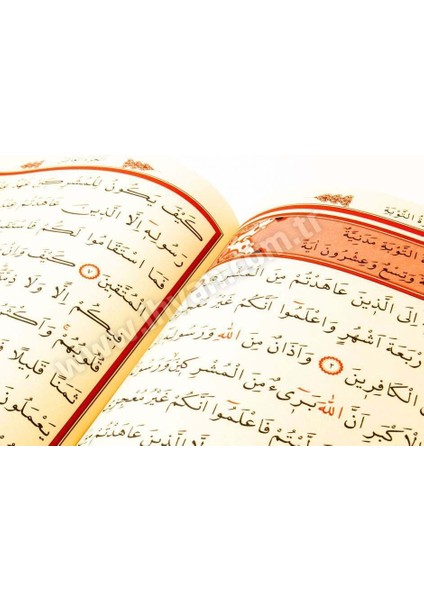 ةُ التَّوْبَةِ
ةُ التَّوْبَةِ مَدَنِيَّةٌ
ةٌ وَتِسْعٌ وَعِشْرُونَ اٰيَةً
اِلَى الَّذ۪ينَ عَاهَدْتُمْ مِنَ الْمُشْرِ
رْبَعَةَ اَشْهُرٍ وَاعْلَمُٓوا اَنَّكُمْ غَيْرُ
الْكَافِر۪ينَ ٢ وَاَذَانٌ مِنَ اللّٰهِ وَرَسُولِ
الْاَكْبَرِ اَنَّ اللّٰهَ بَر۪ٓيءٌ مِنَ الْمُشْرِك۪ينَ وَرَسُو
تَوَلَّيْتُمْ فَاعْلَمُٓوا اَنَّكُمْ غَيْرُ مُعْجِزِي
اِلَّا الَّذ۪ينَ عَاهَدْتُ
كَيْفَ يَكُونُ لِلْمُشْرِك۪ينَ عَهْدٌ
رَسُولِه۪ٓ اِلَّا الَّذ۪ينَ عَاهَدْتُمْ
فَمَا اسْتَقَامُوا لَكُمْ فَا
الْمُتَّق۪ينَ ٧ كَيْفَ وَاِنْ
ف۪يكُمْ اِلًّا وَلَا ذِمَّ
قُلُوبُهُمْ وَاَكْثَ
ثَمَنًا قَل۪يلًا
يَعْمَلُونَ
www.ihvan.com.tr